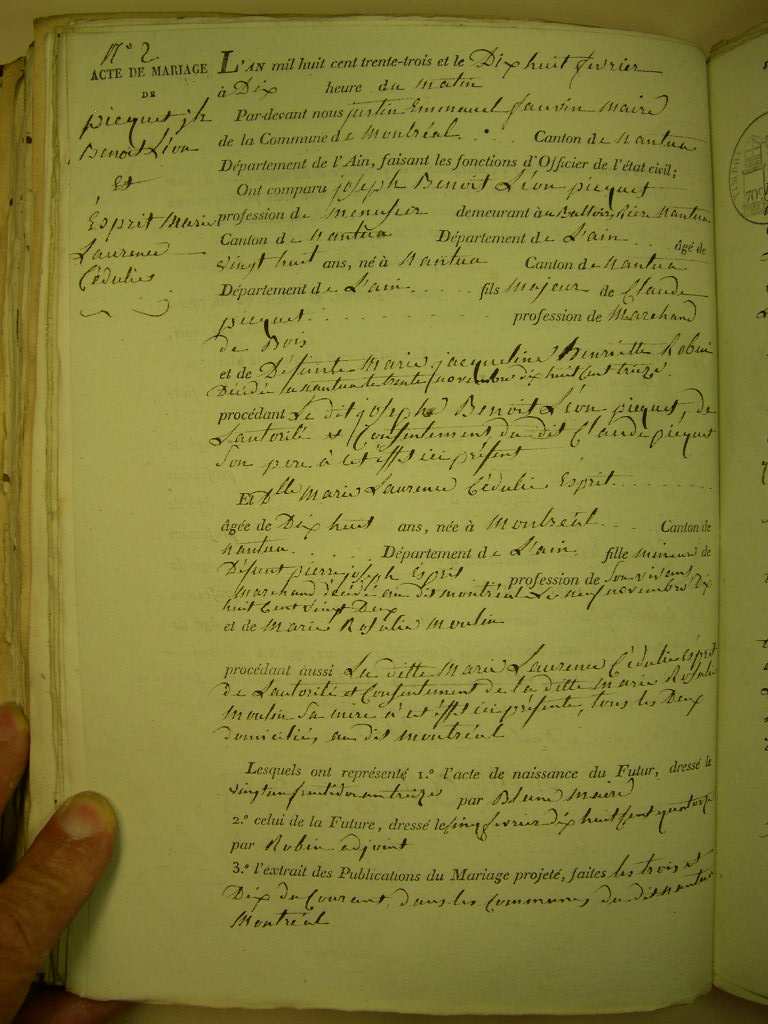 N.° 2
ACTE DE MARIAGE
DE
picquet jh
Benoit Léon
Et
Esprit Marie
Laurence
Cédulie
L'AN mil huit cent trente-trois et le Dix huit fevrier
à Dix heure du matin
Par-devant nous justin Emmanuel Jauvin Maire
de la Commune de Montréal Canton de Nantua
Département de l'Ain, faisant les fonctions d'Officier de l'état civil;
Ont comparu joseph Benoit Léon picquet
profession de menusier demeurant à Nantua
Canton de Nantua Département de L'ain âgé de
vingt huit ans, né à Nantua Canton de Nantua
Département de L'ain fils Majeur de Claude
picquet profession de Marchand
de Bois
et de Défunte Marie jacqueline Henriette Robin
Décédée a nantua le trente novembre dix huit Cent treize
procédant Le dit joseph Benoit Léon picquet, de
Lautorité et Consentement du dit Claude picquet
Son pere à cet effet ici présent
Et Dlle Marie Laurence Cédulie Esprit
âgée de Dix huit ans, née à Montréal Canton de
Nantua Département de L'ain fille mineure de
Défunt pierre joseph Esprit profession de Son vivant
Marchand décédé au dit montréal Le neuf novembre dix
huit Cent vingt Deux
et de Marie Rosalie Moulin
procédant aussi La ditte Marie Laurence Cédulie Esprit
de Lautorité et Consentement de la ditte Marie Rosalie
Moulin Sa mere à cet effet ici présente, tous les Deux
domiciliés au dit montréal
Lesquels ont représenté 1.° l'acte de naissance du Futur, dressé le
vingt an treize par Maire
2.° celui de la Future, dressé le cinq fevrier dix huit Cent quatorze
par Robin adjoint
3.° l'extrait des Publications du Mariage projeté, faites les trois et
Dix du Courant dans les Communes du dit Nantua
Montréal